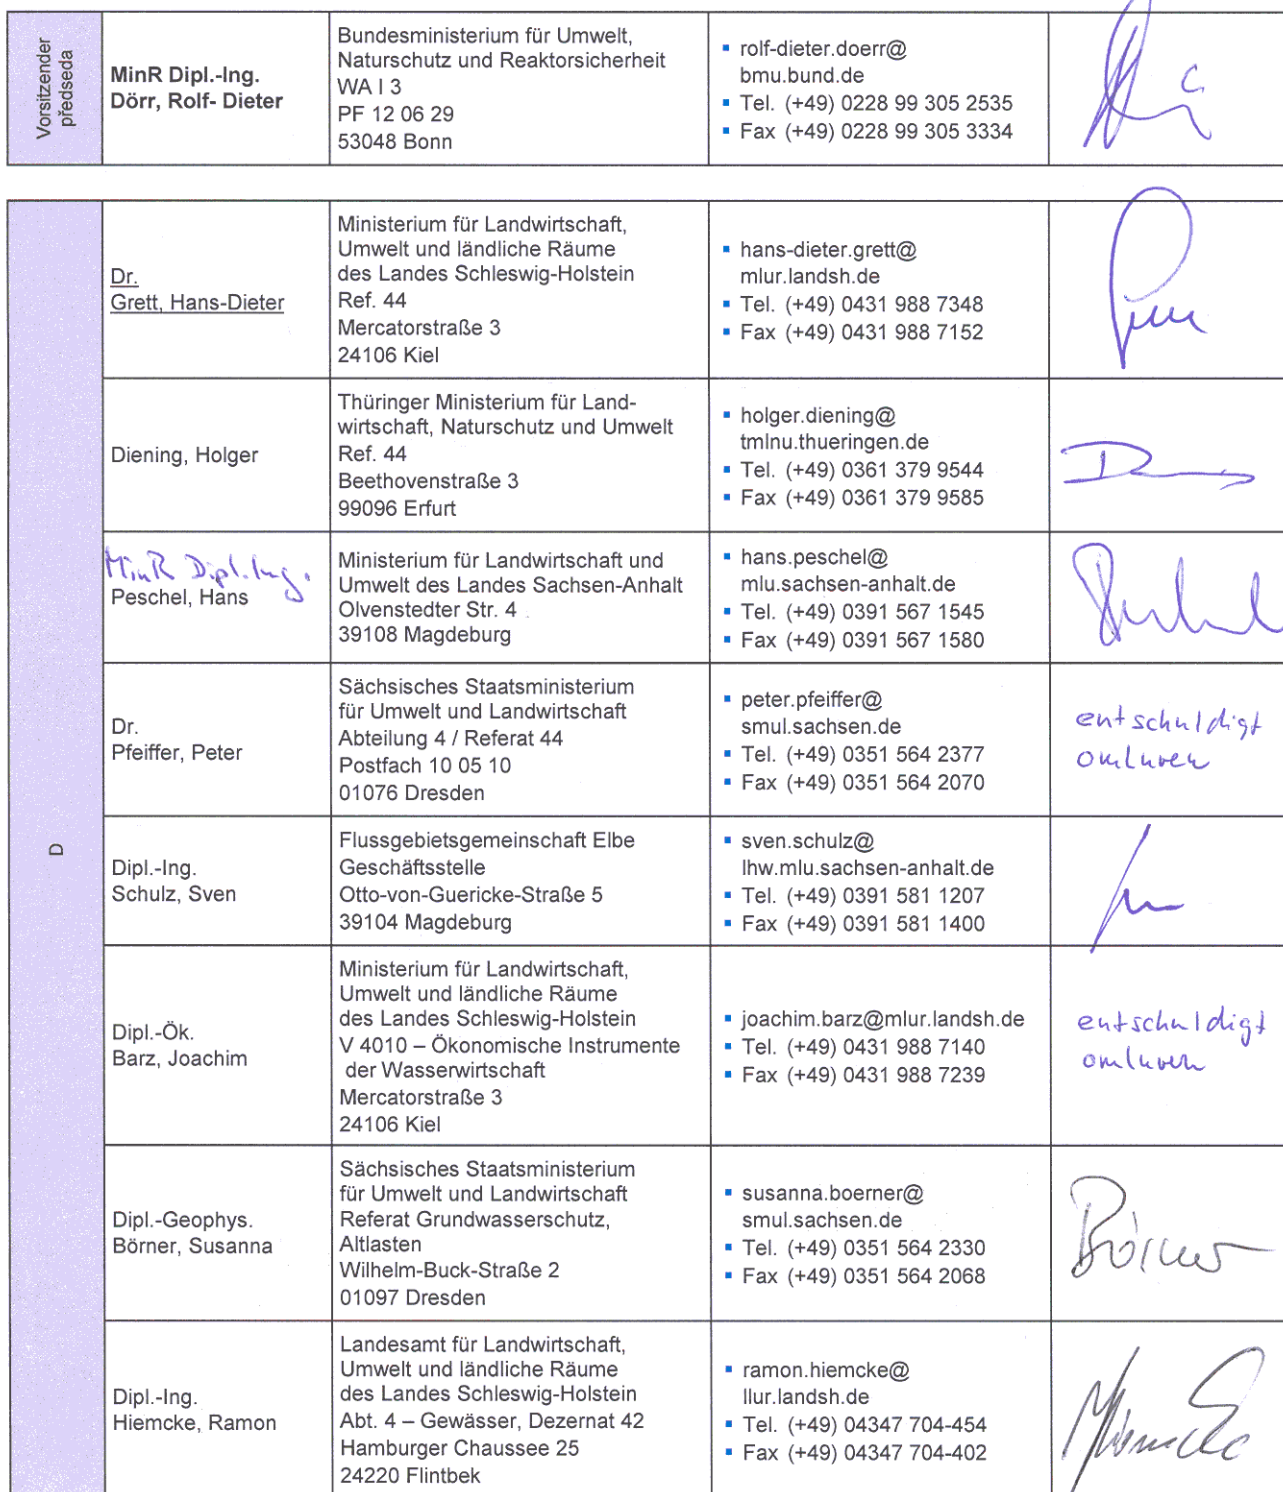 Vorsitzender
předseda
MinR Dipl.-Ing.
Dörr, Rolf- Dieter
Bundesministerium für Umwelt,
Naturschutz und Reaktorsicherheit
WA I 3
PF 12 06 29
53048 Bonn
▪ rolf-dieter.doerr@
bmu.bund.de
▪ Tel. (+49) 0228 99 305 2535
▪ Fax (+49) 0228 99 305 3334
D
Dr.
Grett, Hans-Dieter
Ministerium für Landwirtschaft,
Umwelt und ländliche Räume
des Landes Schleswig-Holstein
Ref. 44
Mercatorstraße 3
24106 Kiel
▪ hans-dieter.grett@
mlur.landsh.de
▪ Tel. (+49) 0431 988 7348
▪ Fax (+49) 0431 988 7152
Diening, Holger
Thüringer Ministerium für Land-
wirtschaft, Naturschutz und Umwelt
Ref. 44
Beethovenstraße 3
99096 Erfurt
▪ holger.diening@
tmlnu.thueringen.de
▪ Tel. (+49) 0361 379 9544
▪ Fax (+49) 0361 379 9585
MinR Dipl.Ing.
Peschel, Hans
Ministerium für Landwirtschaft und
Umwelt des Landes Sachsen-Anhalt
Olvenstedter Str. 4
39108 Magdeburg
▪ hans.peschel@
mlu.sachsen-anhalt.de
▪ Tel. (+49) 0391 567 1545
▪ Fax (+49) 0391 567 1580
Dr.
Pfeiffer, Peter
Sächsisches Staatsministerium
für Umwelt und Landwirtschaft
Abteilung 4 / Referat 44
Postfach 10 05 10
01076 Dresden
▪ peter.pfeiffer@
smul.sachsen.de
▪ Tel. (+49) 0351 564 2377
▪ Fax (+49) 0351 564 2070
entschuldigt
omluven
Dipl.-Ing.
Schulz, Sven
Flussgebietsgemeinschaft Elbe
Geschäftsstelle
Otto-von-Guericke-Straße 5
39104 Magdeburg
▪ sven.schulz@
lhw.mlu.sachsen-anhalt.de
▪ Tel. (+49) 0391 581 1207
▪ Fax (+49) 0391 581 1400
Dipl.-Ök.
Barz, Joachim
Ministerium für Landwirtschaft,
Umwelt und ländliche Räume
des Landes Schleswig-Holstein
V 4010 – Ökonomische Instrumente
der Wasserwirtschaft
Mercatorstraße 3
24106 Kiel
▪ joachim.barz@mlur.landsh.de
▪ Tel. (+49) 0431 988 7140
▪ Fax (+49) 0431 988 7239
entschuldigt
omluven
Dipl.-Geophys.
Börner, Susanna
Sächsisches Staatsministerium
für Umwelt und Landwirtschaft
Referat Grundwasserschutz,
Altlasten
Wilhelm-Buck-Straße 2
01097 Dresden
▪ susanna.boerner@
smul.sachsen.de
▪ Tel. (+49) 0351 564 2330
▪ Fax (+49) 0351 564 2068
Börner
Dipl.-Ing.
Hiemcke, Ramon
Landesamt für Landwirtschaft,
Umwelt und ländliche Räume
des Landes Schleswig-Holstein
Abt. 4 – Gewässer, Dezernat 42
Hamburger Chaussee 25
24220 Flintbek
▪ ramon.hiemcke@
llur.landsh.de
▪ Tel. (+49) 04347 704-454
▪ Fax (+49) 04347 704-402